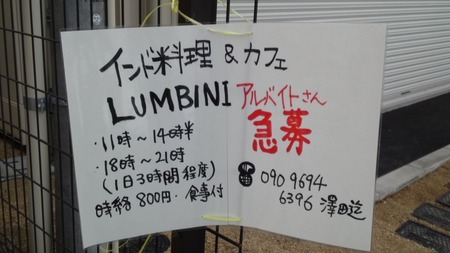 インド料理 & カフェ
LUMBINI アルバイトさん
急募
・11時〜14時半
・18時〜21時
(1日3時間程度)
時給800円・食事付
☎ 090 9694
6396 澤田迄